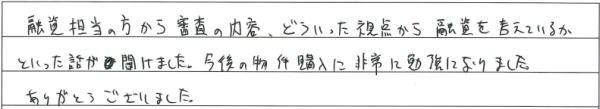 融資担当の方から審査の内容、どういった視点から融資を考えているか
といった話が聞けました。今後の物件購入に非常に勉強になりました
ありがとうございました。